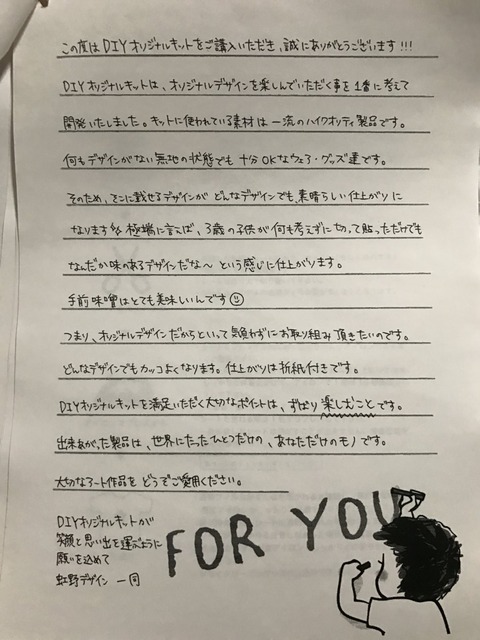 この度はDIYオリジナルキットをご購入いただき、誠にありがとうございます!!!
DIYオリジナルキットは、オリジナルデザインを楽しんでいただく事を1番に考えて
開発いたしました。キットに使われている素材は一流のハイクオリティ製品です。
何もデザインがない無地の状態でも十分OKなウェア・グッズ達です。
そのため、そこに載せるデザインがどんなデザインでも、素晴らしい仕上がりに
なります!! 極端に言えば、3歳の子供が何も考えずに切って貼っただけでも
なんだか味のあるデザインだな〜という感じに仕上がります。
手前味噌はとても美味しいんです
つまり、オリジナルデザインだからといって気負わずにお取り組み頂きたいのです。
どんなデザインでもカッコよくなります。仕上がりは折紙付きです。
DIYオリジナルキットを満足いただく大切なポイントは、ずばり楽しむことです。
出来あがった製品は、世界にたったひとつだけの、あなただけのモノです。
大切なアート作品をどうぞご愛用ください。
DIYオリジナルキットが
笑顔と思い出を運ぶように
願いを込めて
虹野デザイン 一同
FOR YOU